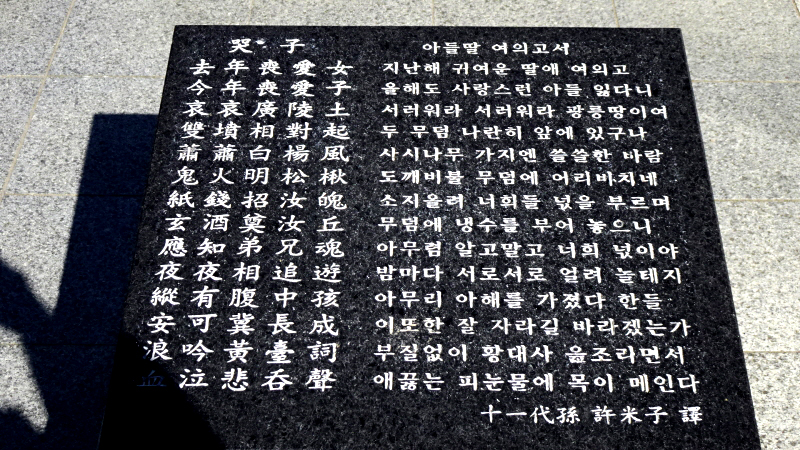 哭子
去年喪愛女
今年喪愛子
哀哀廣陵土
雙墳相對起
蕭蕭白楊風
鬼火明松楸
紙錢招汝魄
玄酒奠汝丘
應知弟兄魂
夜夜相追遊
縱有腹中孩
安可冀長成
浪吟黃臺詞
血泣悲呑聲
아들딸 여의고서
지난해 귀여운 딸애 여의고
올해도 사랑스런 아들 잃다니
서러워라 서러워라 광릉땅이여
두 무덤 나란히 앞에 있구나
사시나무 가지엔 쓸쓸한 바람
도깨비불 무덤에 어리비치네
소지올려 너희들 넋을 부르며
무덤에 냉수를 부어 놓으니
아무렴 알고말고 너희 넋이야
밤마다 서로서로 얼려 놀테지
아무리 아해를 가졌다 한들
이또한 잘 자라길 바라겠는가
부질없이 황대사 읊조리면서
애끓는 피눈물에 목이 메인다
十一代孫 許米子 譯